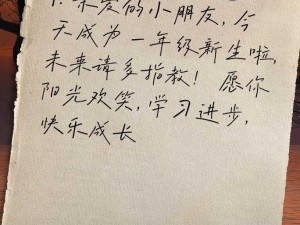 爱的小朋友,今
天成为一年级新生啦,
未来请多指教! 愿你
阳光欢笑,学习进步,
快乐成长